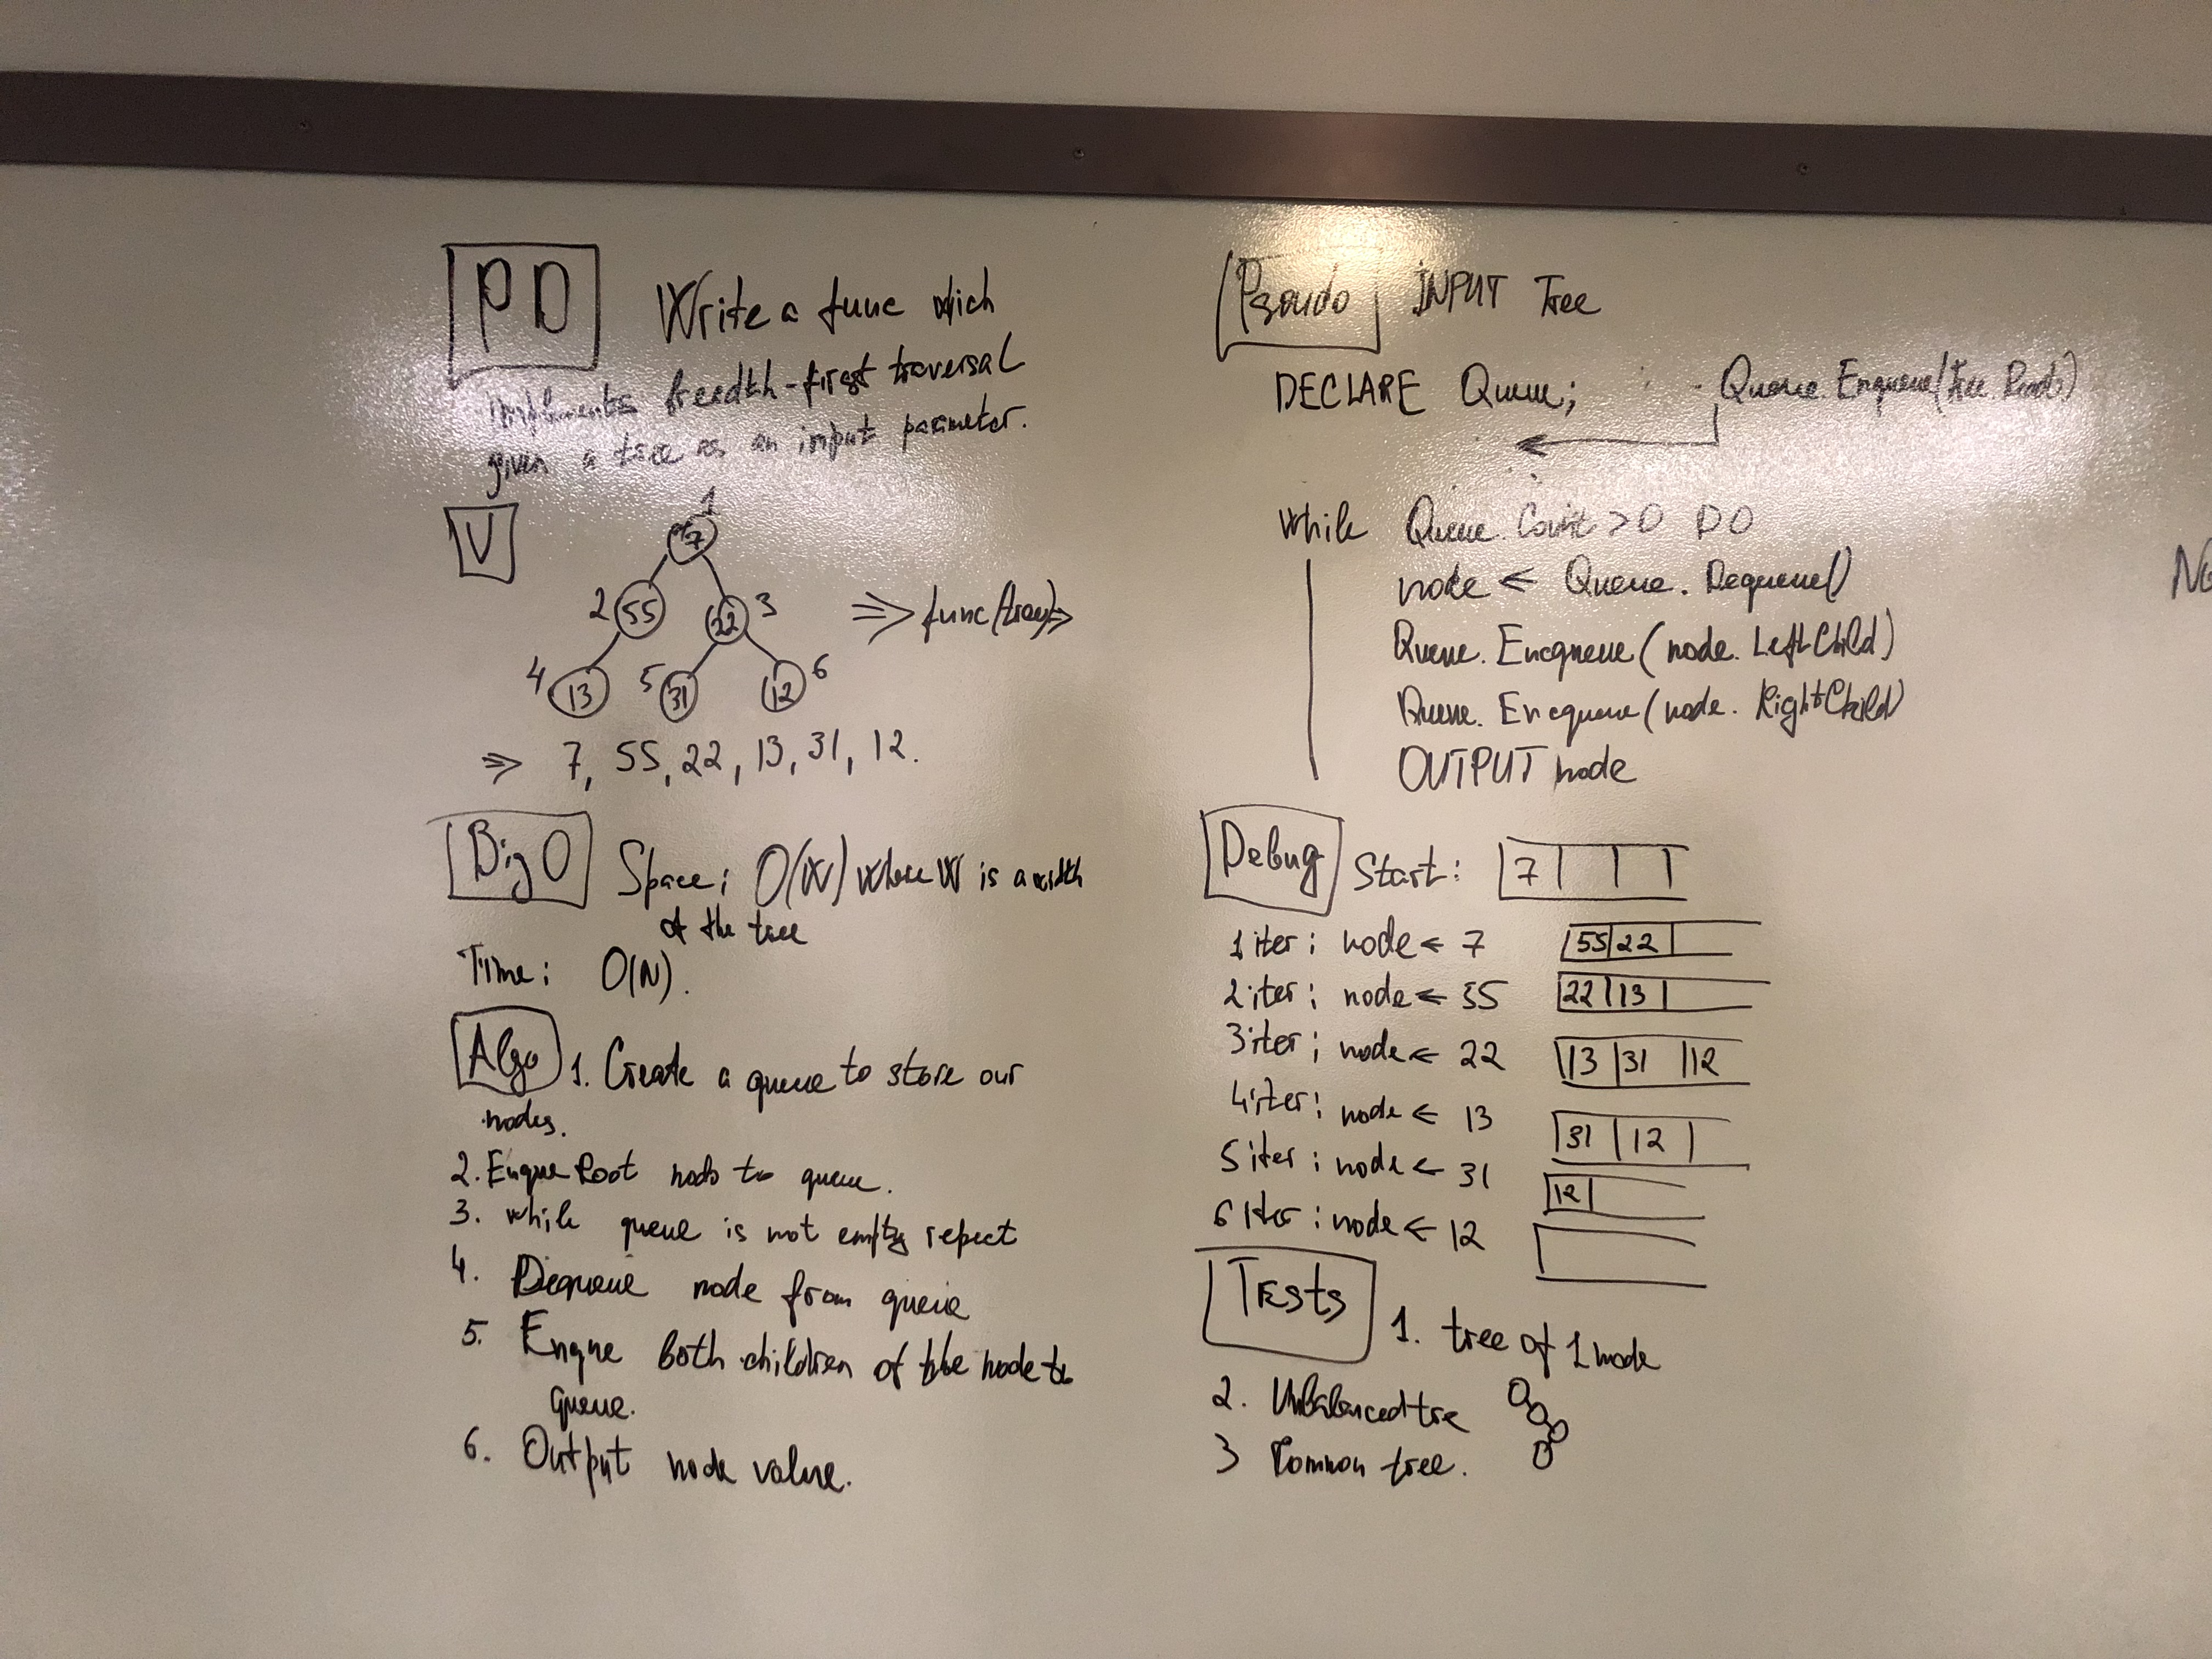 PD
Write a func wich
implements breadth-first traversal
given a tree as an input parameter.
V
1
7
2 55 22 3
4 13 5 31 12 6
⇒ func(tree)⇒
⇒ 7, 55, 22, 13, 31, 12.
Big O
Space: O(W) where W is a width
of the tree
Time: O(N).
Algo
1. Create a queue to store our
nodes.
2. Enque Root node to queue.
3. while queue is not empty repeat
4. Dequeue node from queue
5. Enque both children of the node to
queue.
6. Output node value.
Pseudo
INPUT Tree
DECLARE Queue; Queue.Enqueue(tree.Root)
←
while Queue.Count > 0 DO
node ← Queue.Dequeue()
Queue.Encqueue(node.LeftChild)
Queue.Encqueue(node.RightChild)
OUTPUT node
Debug
Start: 7
1 iter: node ← 7 55 22
2 iter: node ← 55 22 13
3 iter: node ← 22 13 31 12
4 iter: node ← 13 31 12
5 iter: node ← 31 12
6 iter: node ← 12
Tests
1. tree of 1 node
2. Unbalanced tree
3 Common tree.